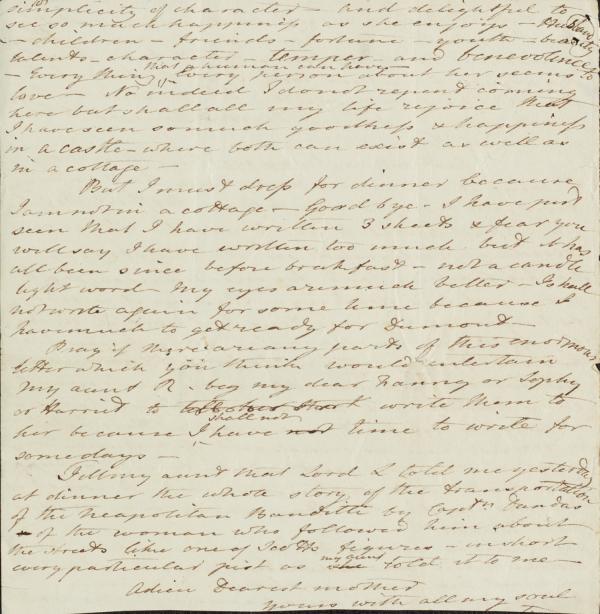 simplicity of character - and delightful to
see so much happiness as she enjoys - Husband
- children - friends - fortune - youth - beauty
talents - character - temper and benevolence
- Every thing that human can have Every person about her seems to
love - No indeed I do not repent coming
here but shall all my life rejoice that
I have seen so much goodness & happiness
in a castle - where both can exist as well as
in a cottage -
But I must dress for dinner because
I am not in a cottage - Good bye - I have just
seen that I have written 3 sheets & fear you
will say I have written too much but it has
all been since before breakfast - not a candle
light word - My eyes are much better - I shall
not write again for some time because I
have much to get ready for Dumont -
Pray if there are any parts of this enormous
letter which you think would entertain
my aunt R - beg my dear Fanny or Sophy
or Harriet to write them to
her because I shall not have not time to write for
some days -
Tell my aunt that Lord L told me yesterday
at dinner the whole story of the transportation
of the Neapolitan Banditti by Captn Dundas
- of the woman who followed him about
the streets like one of Scotts figures - in short
every particular just as my aunt she told it to me -
Adieu Dearest mother
Yours with all my soul